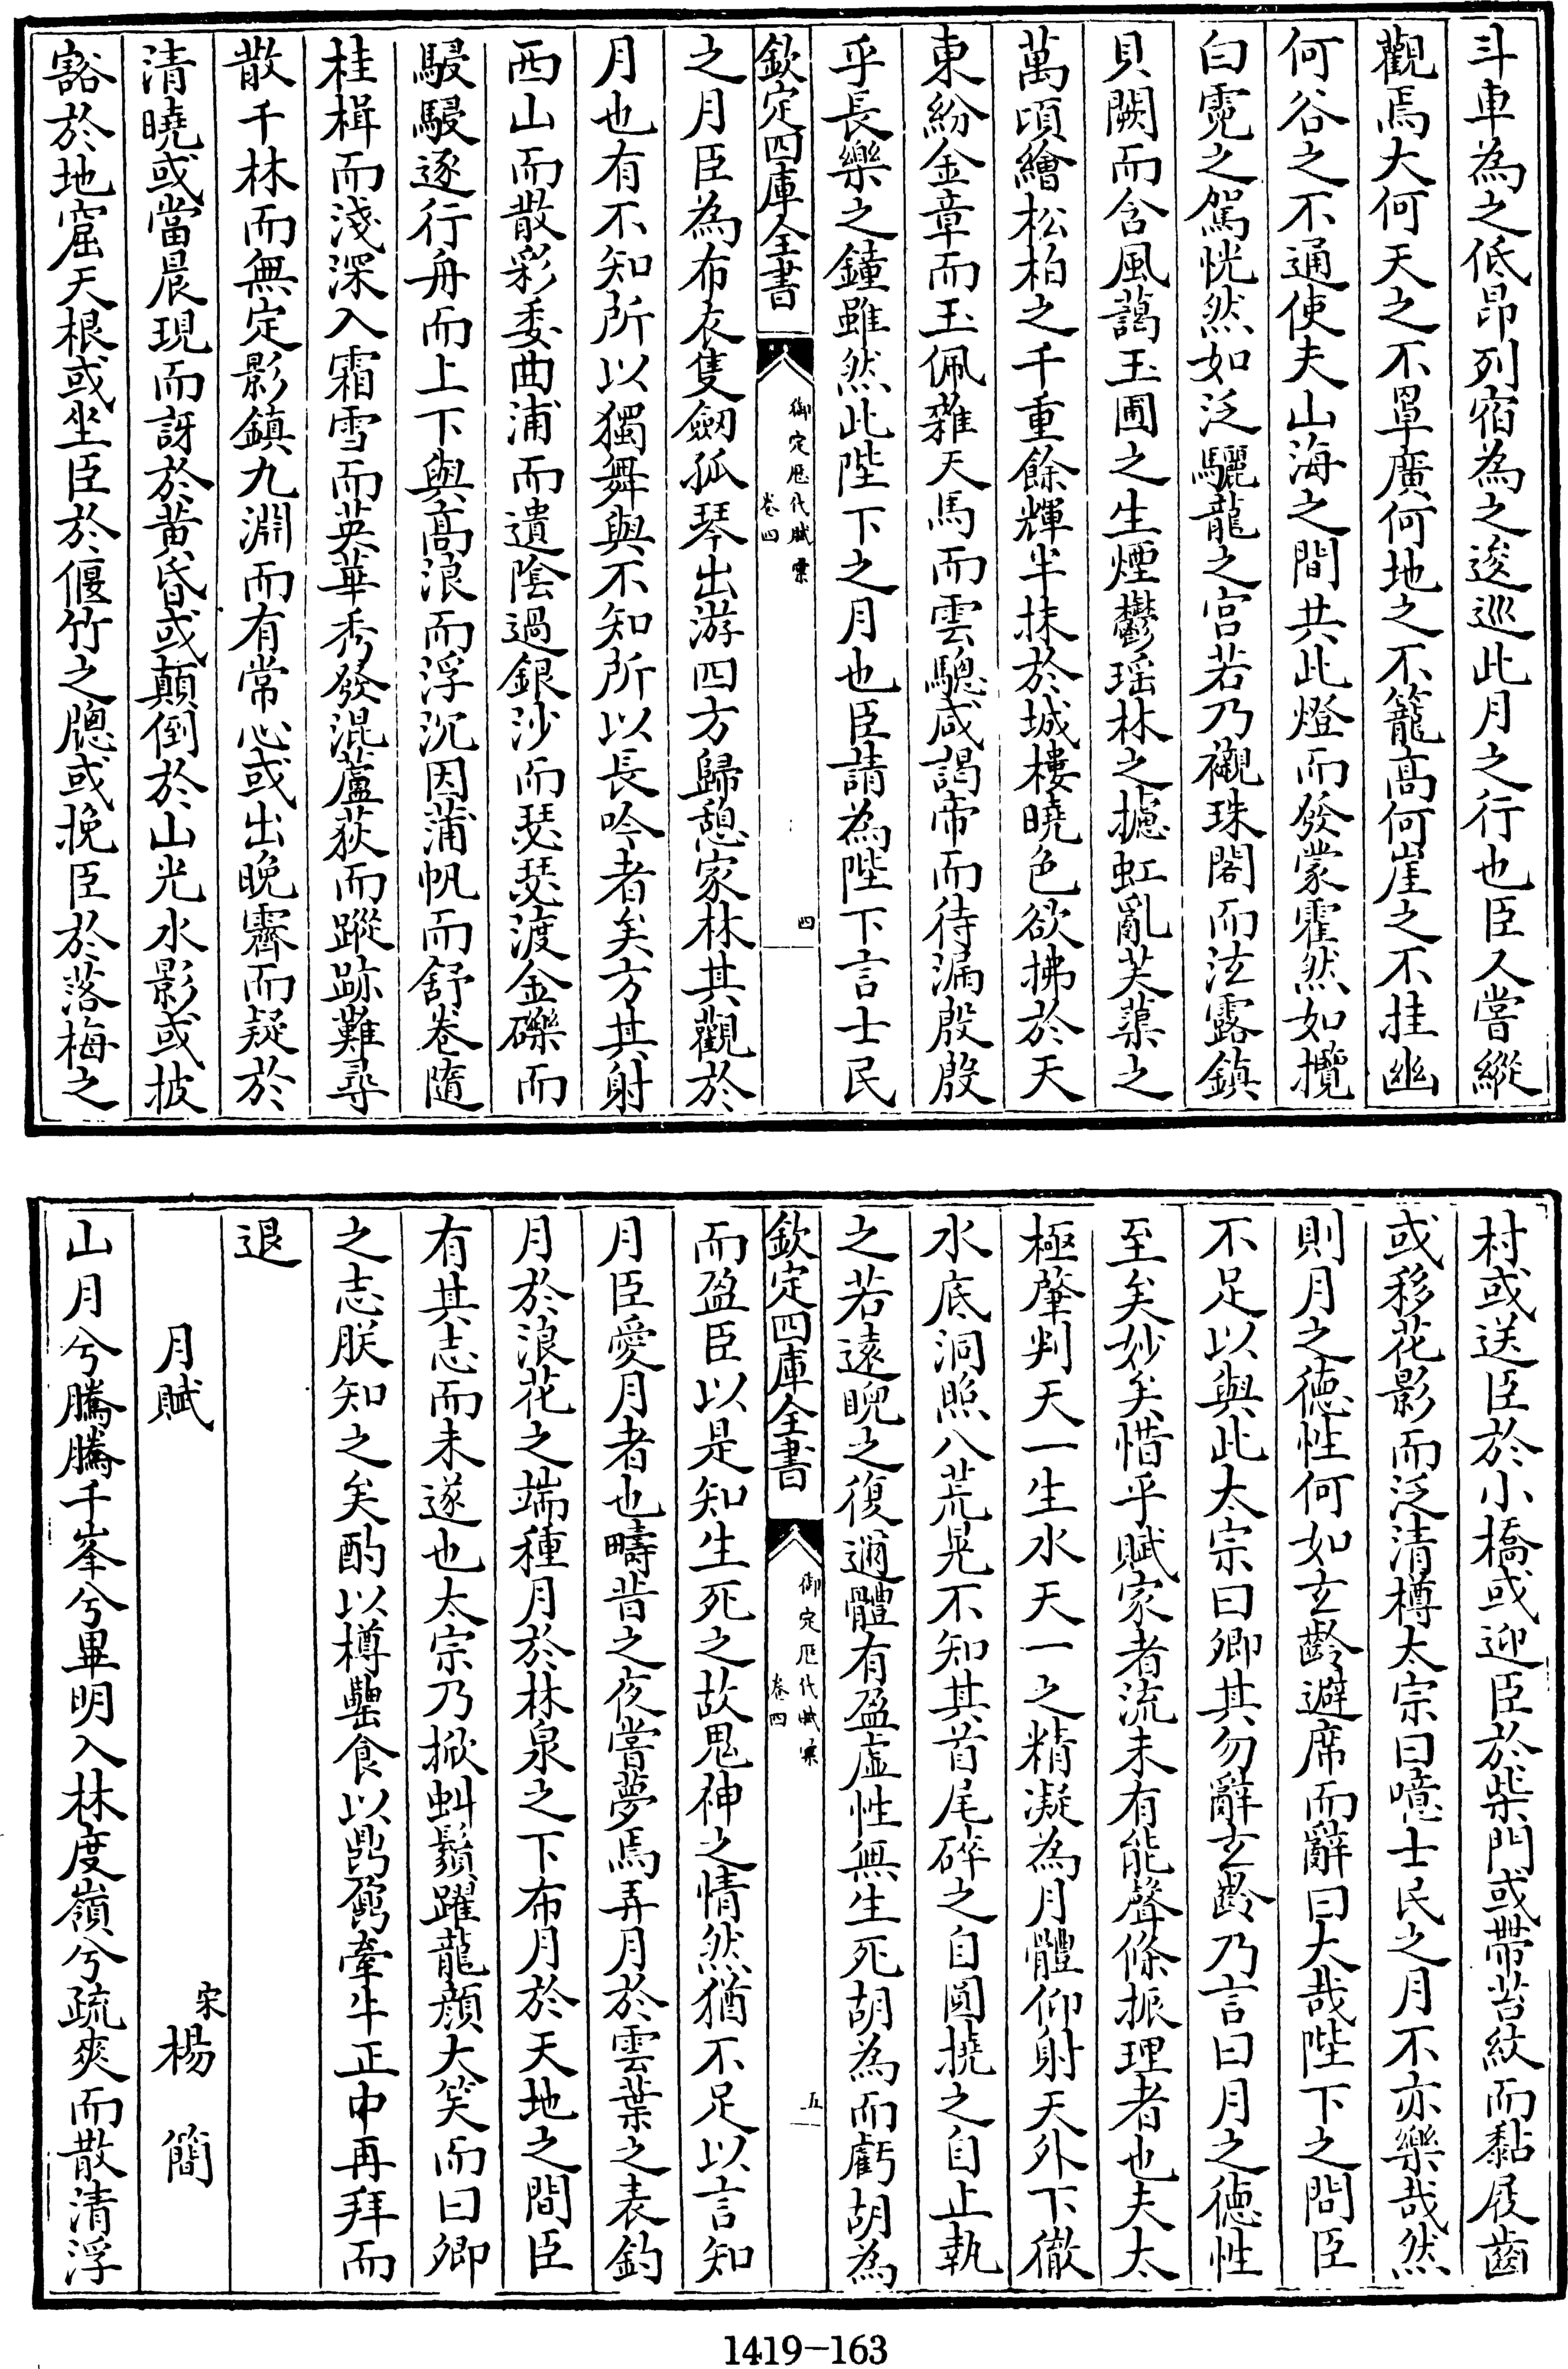 斗車為之低昂列宿為之逡巡此月之行也臣又嘗縱
觀焉大何天之不罩廣何地之不籠高何崖之不挂幽
何谷之不通使夫山海之間共此燈而發蒙霍然如攬
白霓之駕恍然如泛驪龍之宮若乃襯珠閣而泫露鎮
貝闕而含風藹玉圃之生煙鬱瑶林之攄虹亂芙蕖之
萬頃繪松柏之千重餘輝半抹於城樓曉色欲拂於天
東紛金章而玉佩雜天馬而雲驄咸謁帝而待漏殷殷
乎長樂之鐘雖然此陛下之月也臣請為陛下言士民
欽定四庫全書
御定厯代賦彙
卷四
四
之月臣為布衣隻劒孤琴出游四方歸憩家林其觀於
月也有不知所以獨舞與不知所以長吟者矣方其射
西山而散彩委曲浦而遺陰過銀沙而瑟瑟渡金礫而
駸駸逐行舟而上下與高浪而浮沉因蒲帆而舒卷隨
桂楫而淺深入霜雪而英華秀發混蘆荻而蹤跡難尋
散千林而無定影鎮九淵而有常心或出晚霽而疑於
清曉或當晨現而訝於黄昏或顛倒於山光水影或披
豁於地窟天根或坐臣於偃竹之牕或挽臣於落梅之
村或送臣於小橋或迎臣於柴門或帶苔紋而黏屐齒
或移花影而泛清樽太宗曰噫士民之月不亦樂哉然
則月之德性何如玄齡避席而辭曰大哉陛下之問臣
不足以與此太宗曰卿其勿辭玄齡乃言曰月之德性
至矣妙矣惜乎賦家者流未有能聲條振理者也夫太
極肇判天一生水天一之精凝為月體仰射天外下徹
水底洞照八荒晃不知其首尾碎之自圓撓之自止執
之若遠睨之復邇體有盈虛性無生死胡為而虧胡為
欽定四庫全書
御定厯代賦彙
卷四
五
而盈臣以是知生死之故鬼神之情然猶不足以言知
月臣愛月者也疇昔之夜嘗夢焉弄月於雲葉之表釣
月於浪花之端種月於林泉之下布月於天地之間臣
有其志而未遂也太宗乃掀虯鬚躍龍顔大笑而曰卿
之志朕知之矣酌以樽罍食以鼎鼐牽牛正中再拜而
退
月賦
宋楊簡
山月兮騰騰千峯兮畢明入林度嶺兮疏爽而散清浮
1419-163